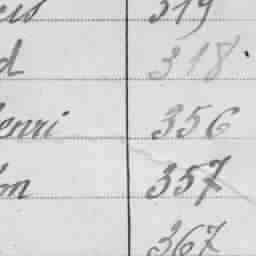 319
d 318.
enri 356
on 357
367